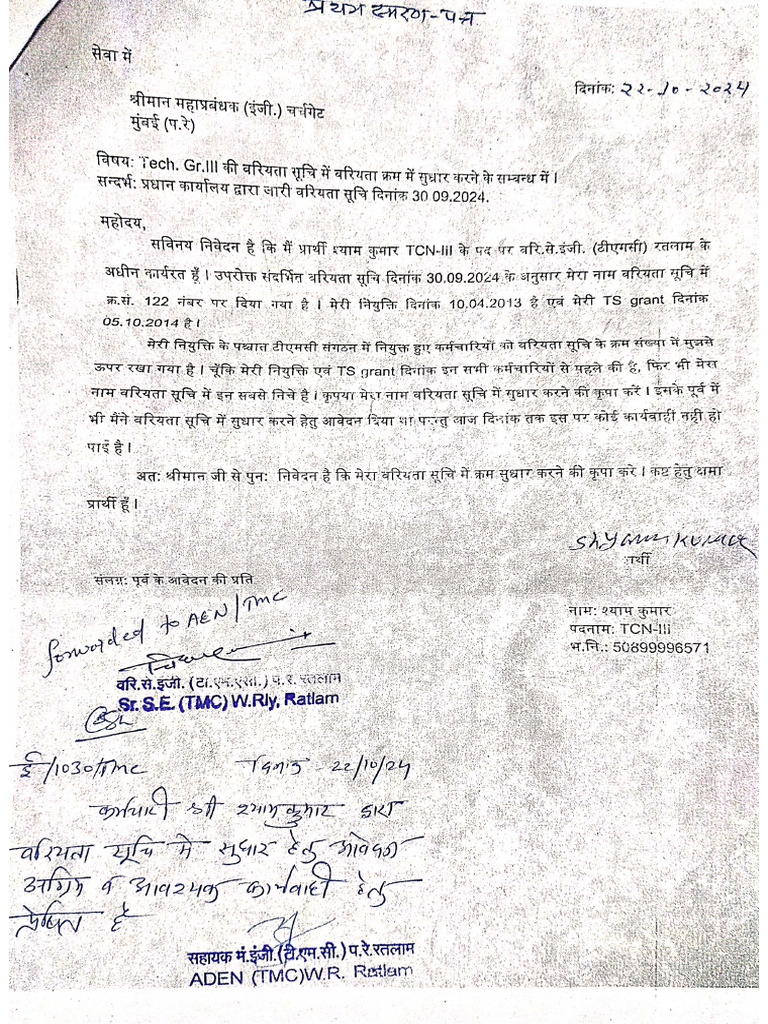 प्रथम स्मरण-पत्र
सेवा में
दिनांक: २२-१०-२०२४
श्रीमान महाप्रबंधक (इंजी.) चर्चगेट
मुंबई (प.रे)
विषय: Tech. Gr.III की वरियता सूचि में वरियता क्रम में सुधार करने के सम्बन्ध में।
सन्दर्भ: प्रधान कार्यालय द्वारा जारी वरियता सूचि दिनांक 30 09.2024.
महोदय,
सविनय निवेदन है कि मैं प्रार्थी श्याम कुमार TCN-III के पद पर वरि.से.इंजी. (टीएमसी) रतलाम के
अधीन कार्यरत हूँ। उपरोक्त संदर्भित वरियता सूचि दिनांक 30.09.2024 के अनुसार मेरा नाम वरियता सूचि में
क्र.सं. 122 नंबर पर दिया गया है। मेरी नियुक्ति दिनांक 10.04.2013 है एवं मेरी TS grant दिनांक
05.10.2014 है।
मेरी नियुक्ति के पश्चात टीएमसी संगठन में नियुक्त हुए कर्मचारियों को वरियता सूचि के क्रम संख्या में मुजसे
ऊपर रखा गया है। चूँकि मेरी नियुक्ति एवं TS grant दिनांक इन सभी कर्मचारियों से पहले की है, फिर भी मेरा
नाम वरियता सूचि में इन सबसे निचे है। कृपया मेरा नाम वरियता सूचि में सुधार करने की कृपा करें। इसके पूर्व में
भी मैंने वरियता सूचि में सुधार करने हेतु आवेदन दिया था परन्तु आज दिनांक तक इस पर कोई कार्यवाही नही हो
पाई है।
अत: श्रीमान जी से पुन: निवेदन है कि मेरा वरियता सूचि में क्रम सुधार करने की कृपा करे। कष्ट हेतु क्षमा
प्रार्थी हूँ।
Shyam Kumar
प्रार्थी
संलग्न: पूर्व के आवेदन की प्रति
नाम: श्याम कुमार
पदनाम: TCN-III
भ.नि.: 50899996571
forwarded to AEN/TMC
वरि.से.इंजी. (टी.एम.सी.) प.रे. रतलाम
Sr. S.E. (TMC) W.Rly, Ratlam
ई/1030/TMC दिनांक 22/10/24
कर्मचारी श्री श्यामकुमार द्वारा
वरियता सूचि में सुधार हेतु आवेदन
अग्रिम व आवश्यक कार्यवाही हेतु
प्रेषित है
सहायक मं.इंजी.(टी.एम.सी.) प.रे.रतलाम
ADEN (TMC)W.R. Ratlam